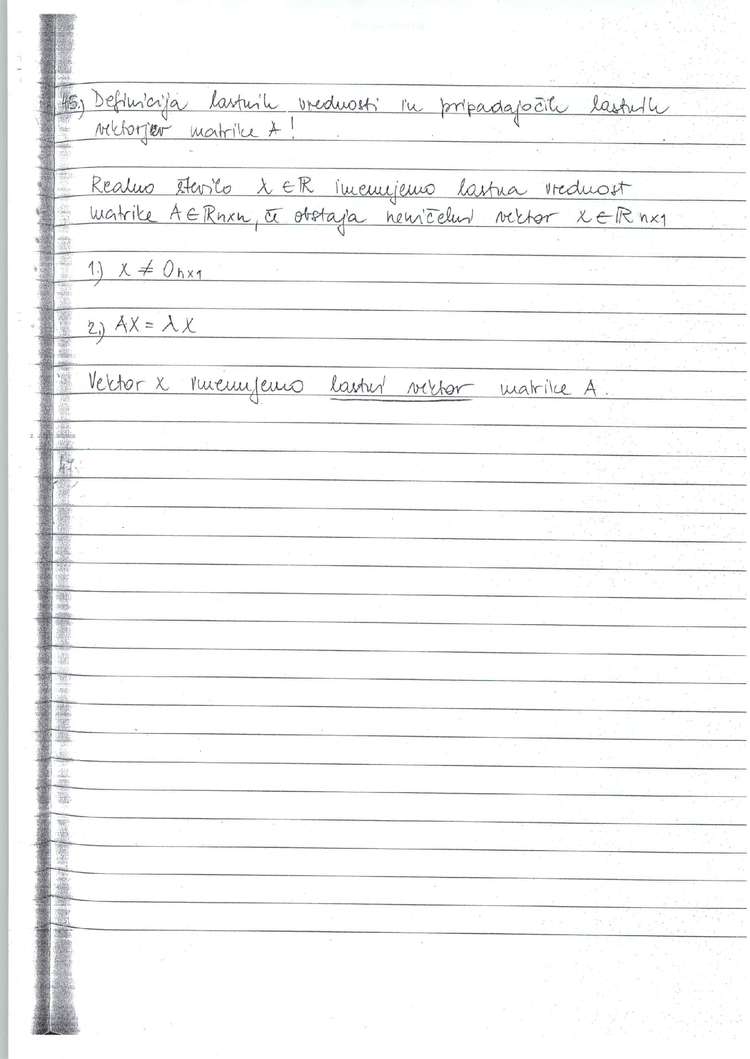 45.) Definicija lastnih vrednosti in pripadajočih lastnih
vektorjev matrike A!
Realno število λ ∈ ℝ imenujemo lastna vrednost
matrike A ∈ ℝnxn, če obstaja neničelni vektor x ∈ ℝnx1
1.) x ≠ 0nx1
2.) AX = λX
Vektor x imenujemo lastni vektor matrike A.